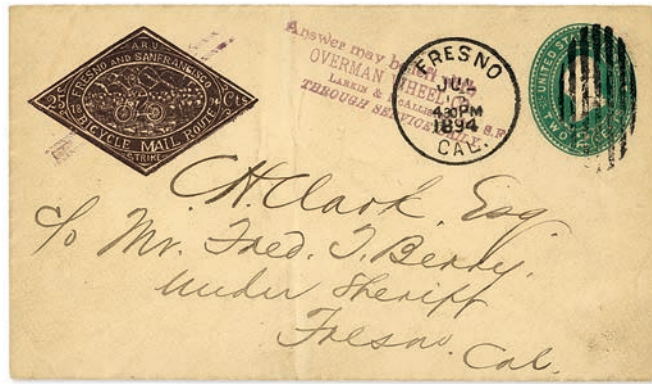 A.R.U.
FRESNO AND SAN FRANCISCO
25 Cts
18 94
BICYCLE MAIL ROUTE
STRIKE
Answer may be left with
OVERMAN WHEEL Co
LARKIN & McALLISTER S.F.
THROUGH SERVICE DAILY
FRESNO
JUL
430PM
1894
CAL.
UNITED STATES
TWO CENTS
C.H. Clark, Esq.
c/o Mr. Fred. T. Berry.
Under Sheriff
Fresno.
Cal.